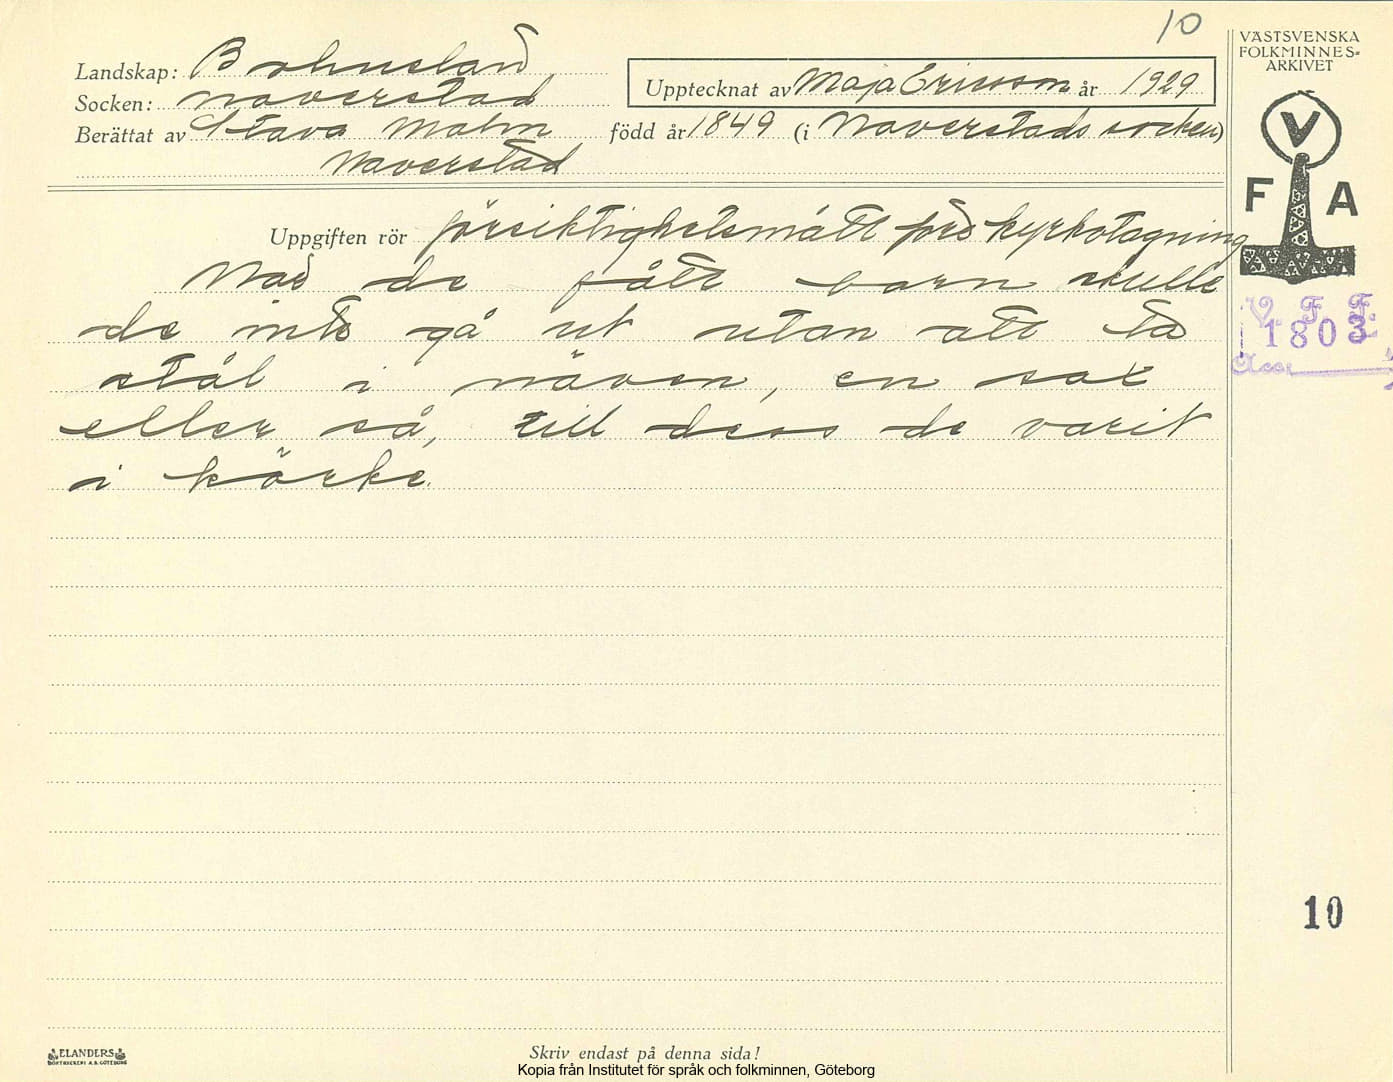 10
VÄSTSVENSKA
FOLKMINNES-
ARKIVET
Landskap: Bohuslän
Upptecknat av Maja Ericsson år 1929
Socken: Naverstad
Berättat av Stava Malm född år 1849 (i Naverstads socken)
Naverstad
V
F A
Uppgiften rör försiktighetsmått före kyrkotagning
När de fått barn skulle
de inte gå ut utan att ta
stål i näven, en sax
eller så, till dess de varit
i körke.
V. F. F.
1803
Acc.
10
ELANDERS
BOKTRYCKERI A.B. GÖTEBORG
Skriv endast på denna sida!
Kopia från Institutet för språk och folkminnen, Göteborg